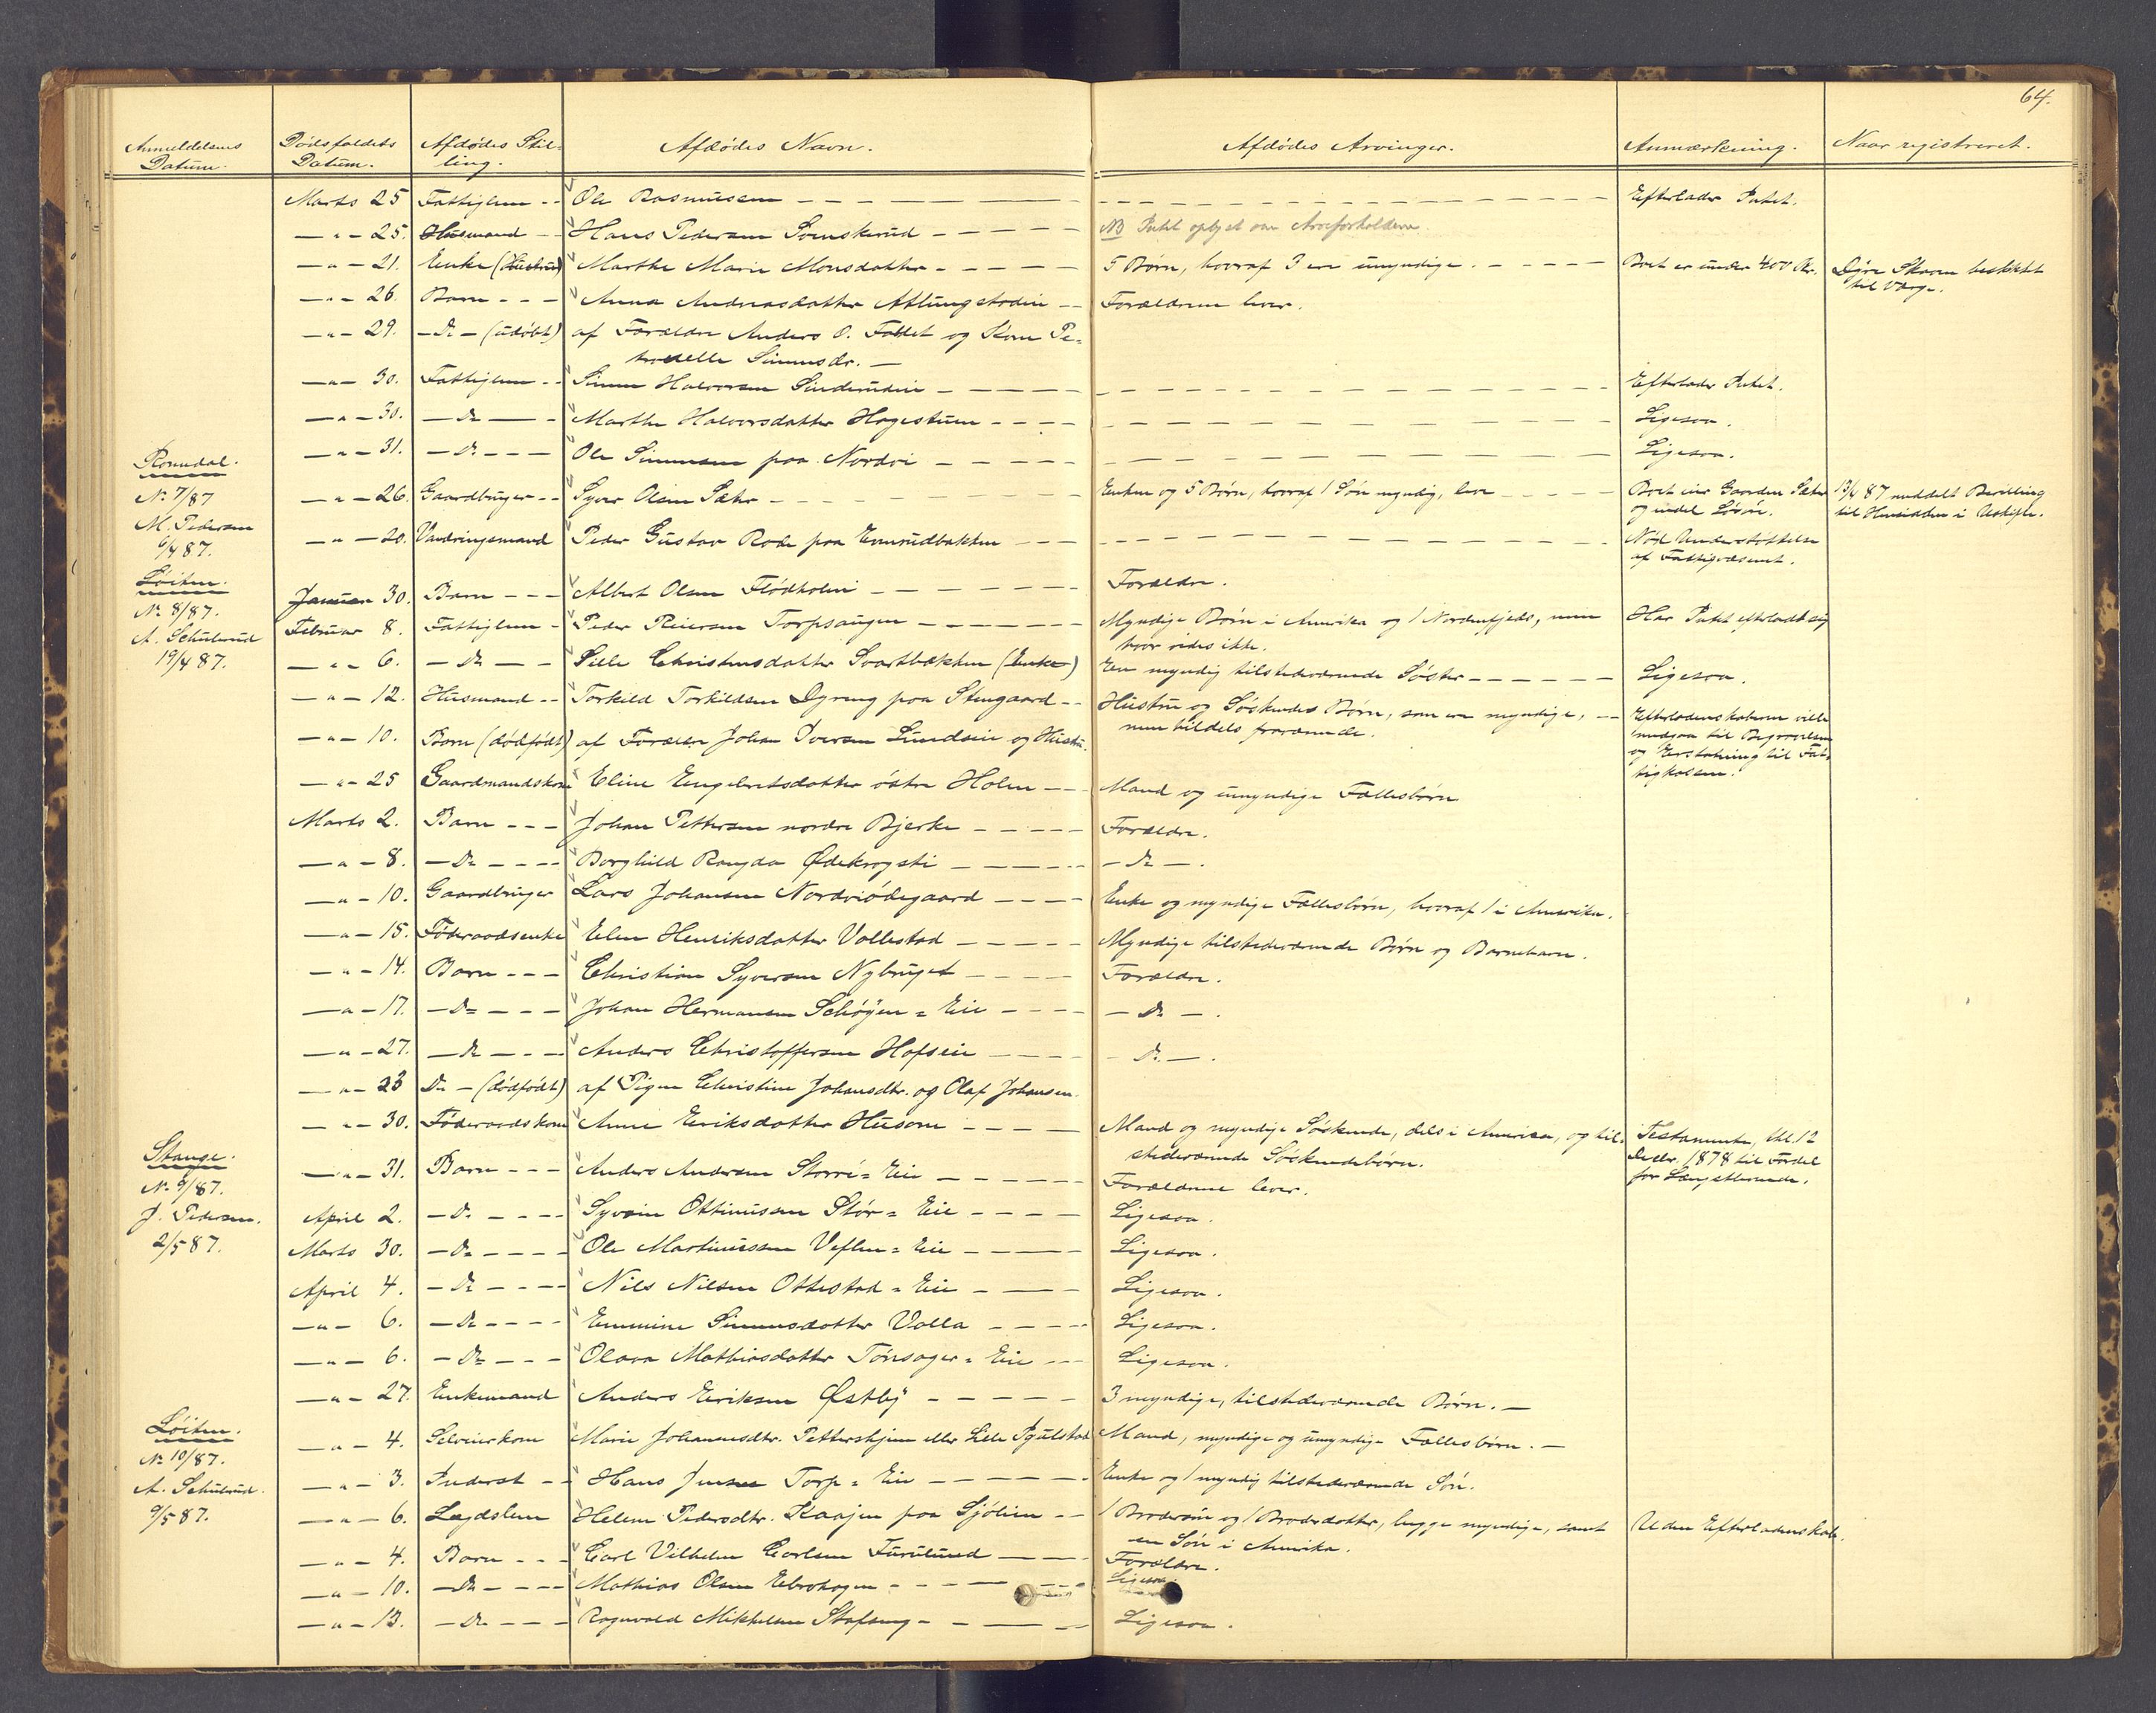 64.
Anmeldelsens Datum. Dødsfaldets Datum. Afdødes Stilling. Afdødes Navn. Afdødes Arvinger. Anmærkning. Naar registreret.
Marts 25 Fattiglem -- Ole Rasmussen Efterlader Intet.
—"— 25. Husmand -- Hans Pedersen NB Intet oplyst om Arveforholdene.
—"— 21. Enke (Hustru) Marthe Marie Monsdatter 5 Børn, hvoraf 3 ere umyndige. Boet er under 400 Kr. Dyre Skaaen beskikket
til Værge.
—"— 26. Barn --- Anna Andreasdatter Atlungstadeie Forældrene lever.
—"— 29. — Do — (udøbt) af Forældre Anders O. Fallet og Karn Pe-
tronelle Simensdr. —
—"— 30. Fattiglem -- Simen Halvorsen Efterlader Intet.
—"— 30. — Do — Marthe Halvorsdatter Hagestuen Ligesaa.
—"— 31. — Do — Ole Simensen paa Nordvi Ligesaa.
Romedal.
No 7/87
M. Pedersen
6/4 87.
—"— 26. Gaardbruger -- Syver Olsen Sæter Enken og 5 Børn, hvoraf 1 Søn myndig, lever Boet eier Gaarden Sæter
og endel Løsøre. 13/6 87 meddelt Bevilling
til Hensidden i Uskifte.
—"— 20. Vandringsmand Peder Gustav Rode paa Emrudbakken Nød Understøttelse
af Fattigvæsenet.
Løiten.
No 8/87.
A. Schulerud
19/4 87.
Januar 30. Barn --- Albert Olsen Flödholm Forældre.
Februar 8. Fattiglem - Peder Reiersen Torpsaugen Myndige Børn i Amerika og 1 Nordenfjelds, men
hvor vides ikke. Har Intet efterladt sig
—"— 6. — Do — Sille Christensdatter Svartbækken (Enke) En myndig tilstedeværende Søster Ligesaa.
—"— 12. Husmand -- Torkild Torkildsen Dyreng paa Stengaard Hustru og Søskendes Børn, som ere myndige,
men tildels fraværende. Efterladenskaberne ville
medgaa til Begravelsen
og Erstatning til Fat-
tigkassen.
—"— 10. Barn (dødfødt) af Forældre Johan Iversen Lundseie og Hustru.
—"— 25 Gaardmandskone Eline Engebretsdatter østre Holm Mand og umyndige Fællesbørn
Marts 2. Barn --- Johan Pettersen nordre Bjerke Forældre.
—"— 8. — Do — Borghild Rangda Ødekrogsti — Do —.
—"— 10. Gaardbruger Lars Johansen Nordviödegaard Enke og myndige Fællesbørn, hvoraf 1 i Amerika.
—"— 15. Føderaadsenke Elen Henriksdatter Vollestad Myndige tilstedeværende Børn og Barnebarn.
—"— 14. Barn --- Christian Syversen Nybruget Forældre.
—"— 17. — Do — Johan Hermansen Schøyen = Eie — Do —.
—"— 27. — Do — Anders Christoffersen Hofseie — Do —.
—"— 23 Do — (dødfødt) af Pigen Christine Johansdtr. og Olaf Johansen.
—"— 30. Føderaadskone Anne Eriksdatter Husom Mand og myndige Søskende, dels i Amerika, og til-
stedeværende Søskendebørn. Testamente, thl. 12
Decbr. 1878 til Fordel
for Længstlevende.
Stange.
No 9/87.
J. Pedersen.
2/5 87.
—"— 31. Barn --- Anders Andersen Storri = Eie Forældrene lever.
April 2. — Do — Syverin Ottinussen Stør = Eie Ligesaa.
Marts 30. — Do — Ole Martinussen Veflen = Eie Ligesaa.
April 4. — Do — Nils Nilsen Ottestad = Eie Ligesaa.
—"— 6. — Do — Emmine Simensdatter Volla Ligesaa.
—"— 6. — Do — Olava Mathiasdatter Tønsager = Eie Ligesaa.
—"— 27. Enkemand Anders Eriksen Østby 3 myndige, tilstedeværende Børn. —
Løiten.
No 10/87.
A. Schulerud.
9/5 87.
—"— 4. Selveierkone Marie Johannesdtr. Pettershjem eller Lille Mand, myndige og umyndige Fællesbørn. —
—"— 3. Inderst -- Hans Jensen Torp = Eie Enke og 1 myndig tilstedeværende Søn.
—"— 6. Lægdslem Helene Pedersdtr. Kaajen paa Sjølien 1 Brodersøn og 1 Broderdatter, begge myndige, samt
en Søn i Amerika. Uden Efterladenskab.
—"— 4. Barn --- Carl Vilhelm Carlsen Furulund Forældre.
—"— 10. — Do — Mathias Olsen Ebrohagen Ligesaa.
—"— 13. — Do — Ragnvald Mikkelsen Stafseng Ligesaa.